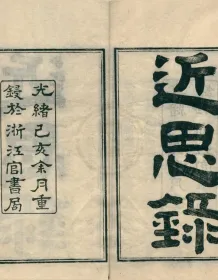 近思錄
光緒己亥余月重
鋟於浙江官書局